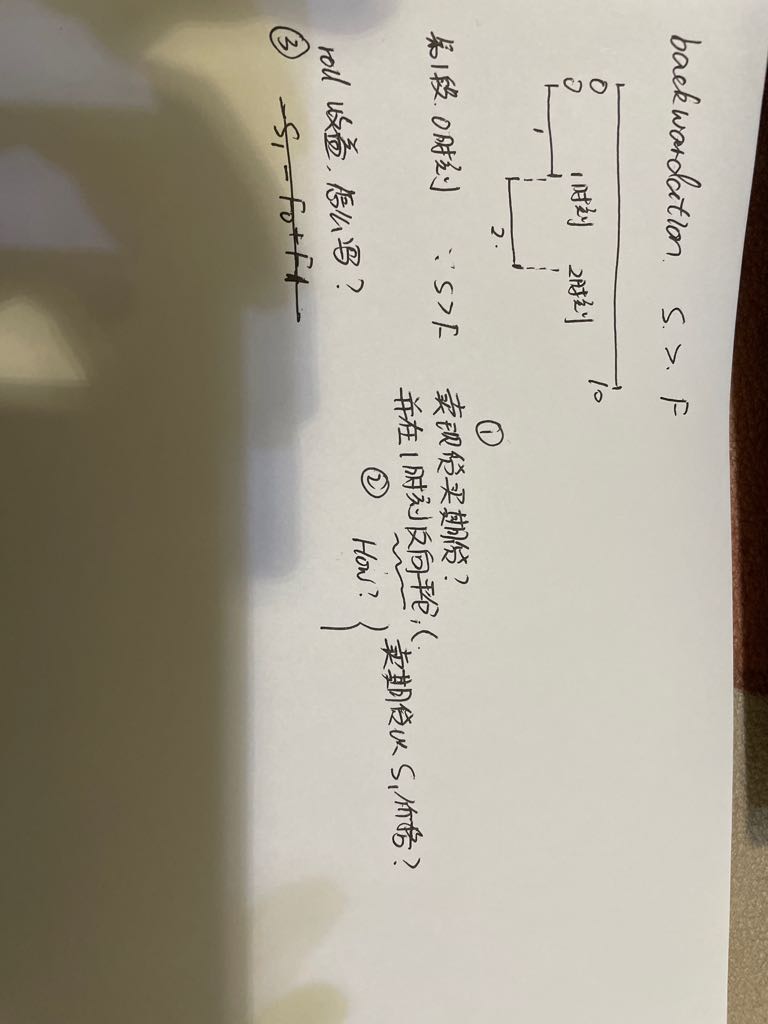 backwardation. S. >. F
0 10
0 1时刻 2时刻
1
2.
第1段. 0时刻 ∵ S>F ① 卖现货买期货?
并在1时刻反向平仓, (卖期货以S₁价格?
② How?
roll 收益, 怎么写?
③ S₁ - F₀ + F1